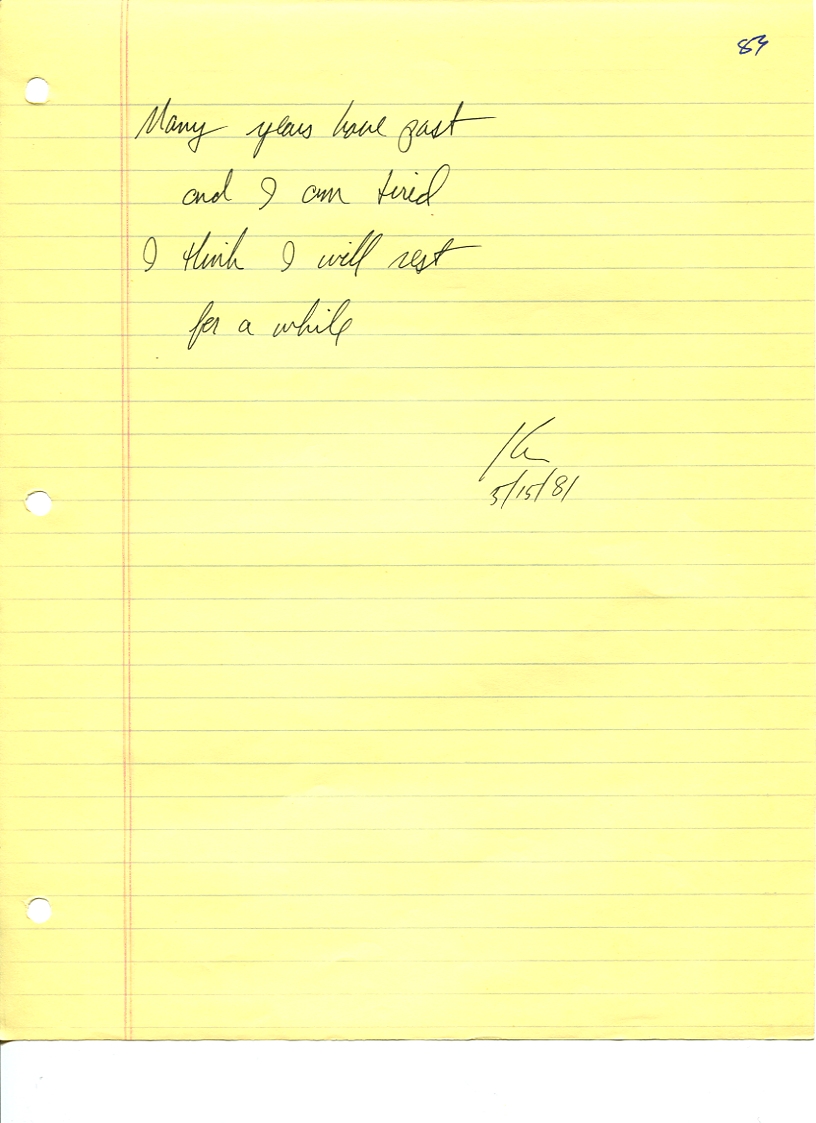 84
Many years have past
and I am tired
I think I will rest
for a while
5/15/81